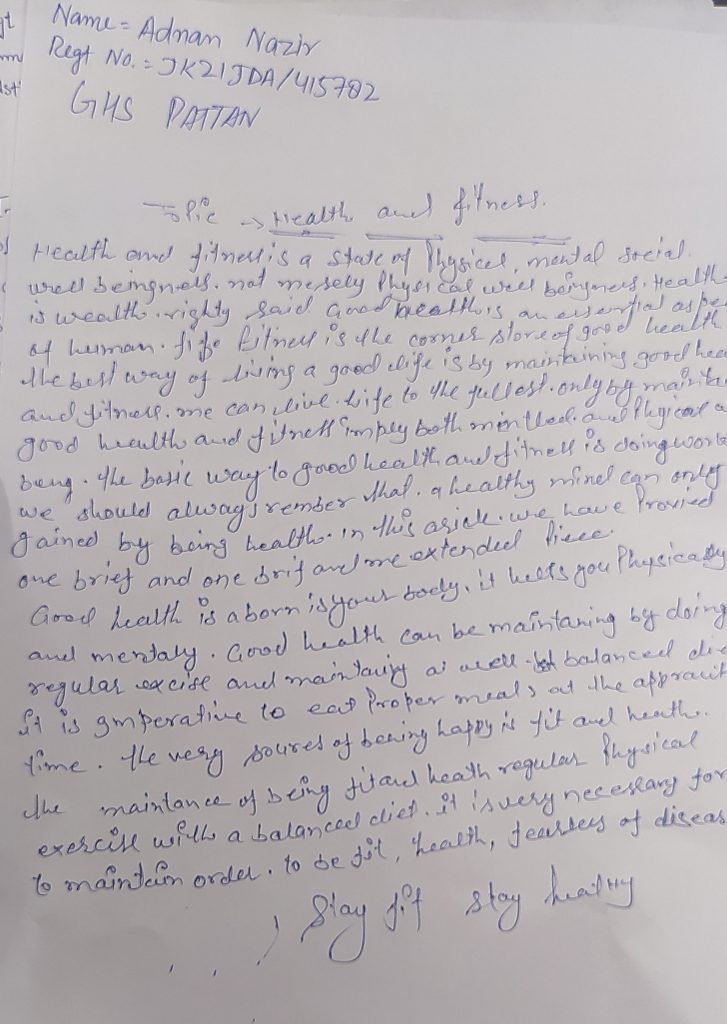 Name = Adnan Nazir
Regt No. = JK21JDA/415782
GHS PATTAN
Topic → Health and fitness.
Health and fitness is a state of Physical, mental social
well beingness. not merely Physical well beingness. Health
is wealth. rightly said Good health is an essential aspe
of human. life fitness is the corner store of good health
the best way of living a good life is by maintaining good hea
and fitness. one can live life to the fullest. only by mainta
good health and fitness imply both and Physical a
being. the basic way to good health and fitness is doing work
we should always rember that. a healthy mind can only
gained by being health. in this aricle. we have Provied
one brief and one brif and one extended Piece.
Good health is a born is your body, it helts you Physicaly
and mentaly. Good health can be maintaning by doing
regular excise and as well balanced die
it is imperative to eat Proper meals at the
time. the very soures of being happy is fit and heath.
the maintance of being fit and heath regular Physical
exercise with a balanced diet. it is very necessary for
to maintain order. to be fit, health, of diseas
Stay fit stay healthy